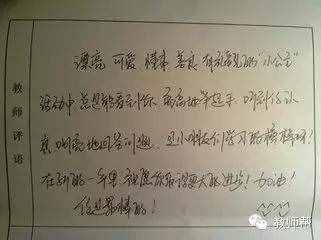 教师评语
漂亮 可爱 懂事 善良 有礼貌的“小公主”
活动中总是能看到你 高高地举起手 听到你认
真响亮地回答问题 是小朋友们学习的榜样哦!
在新的一年里 祝愿你取得更大的进步! 加油!
你是最棒的!
教师帮